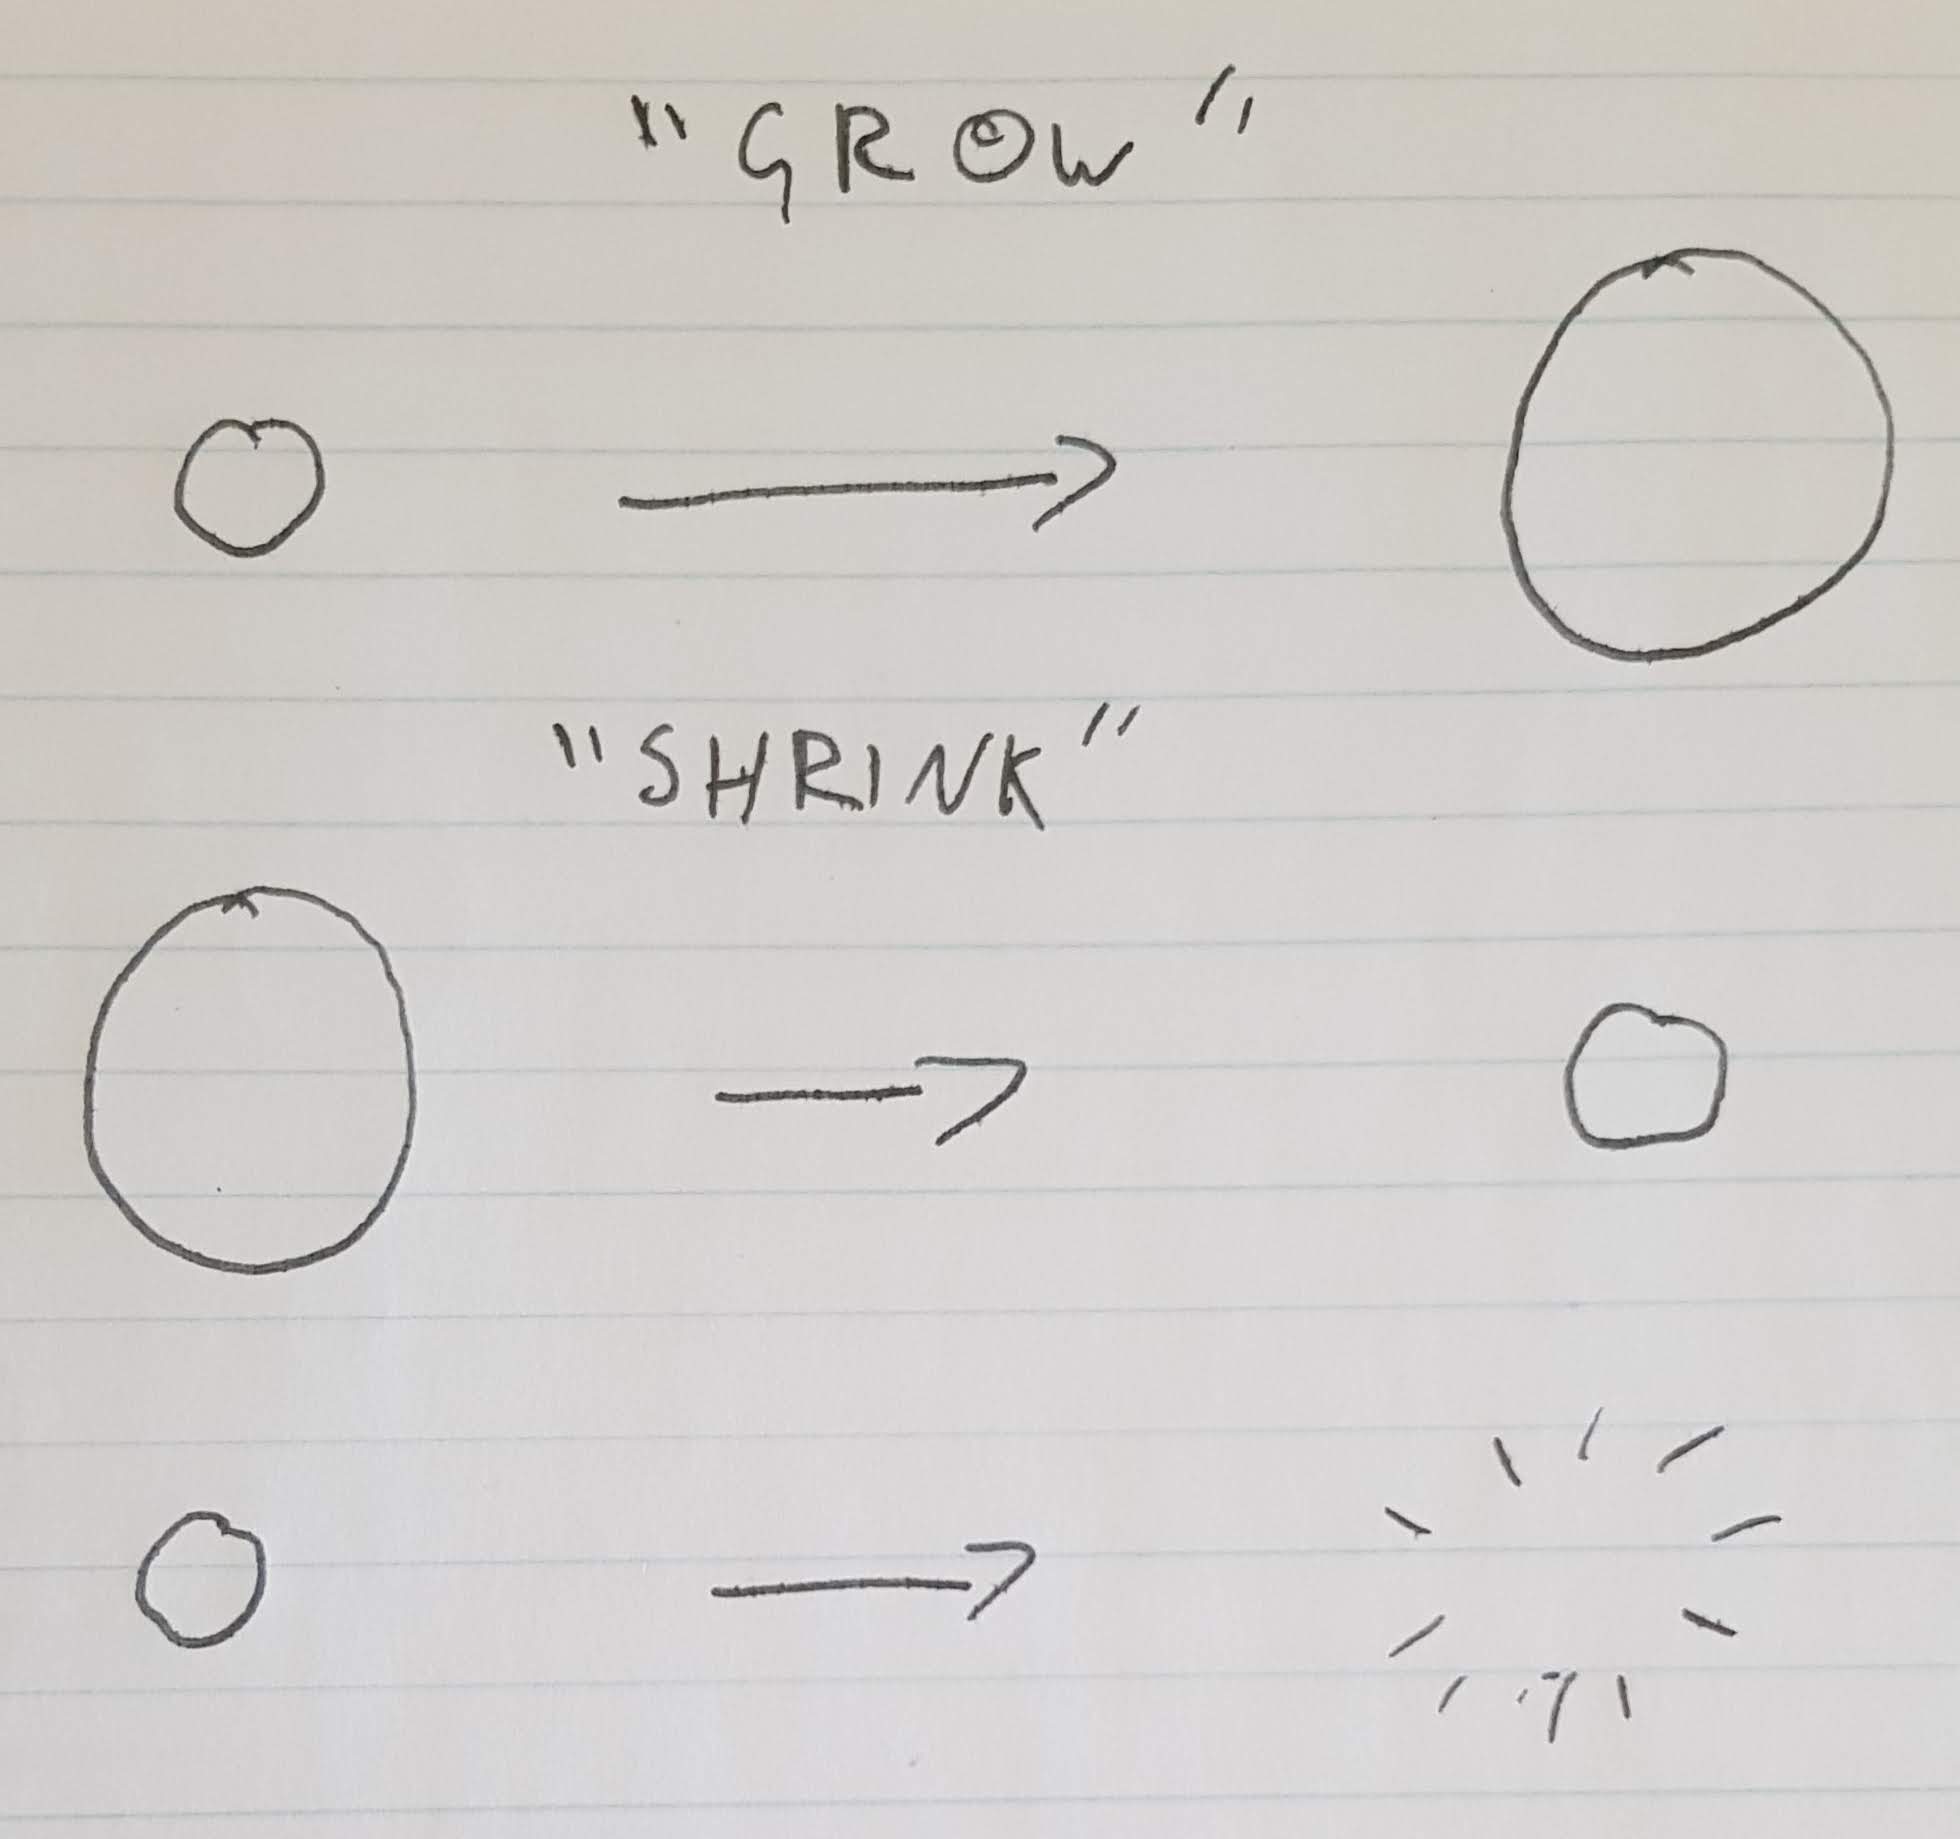 "GROW"
"SHRINK"